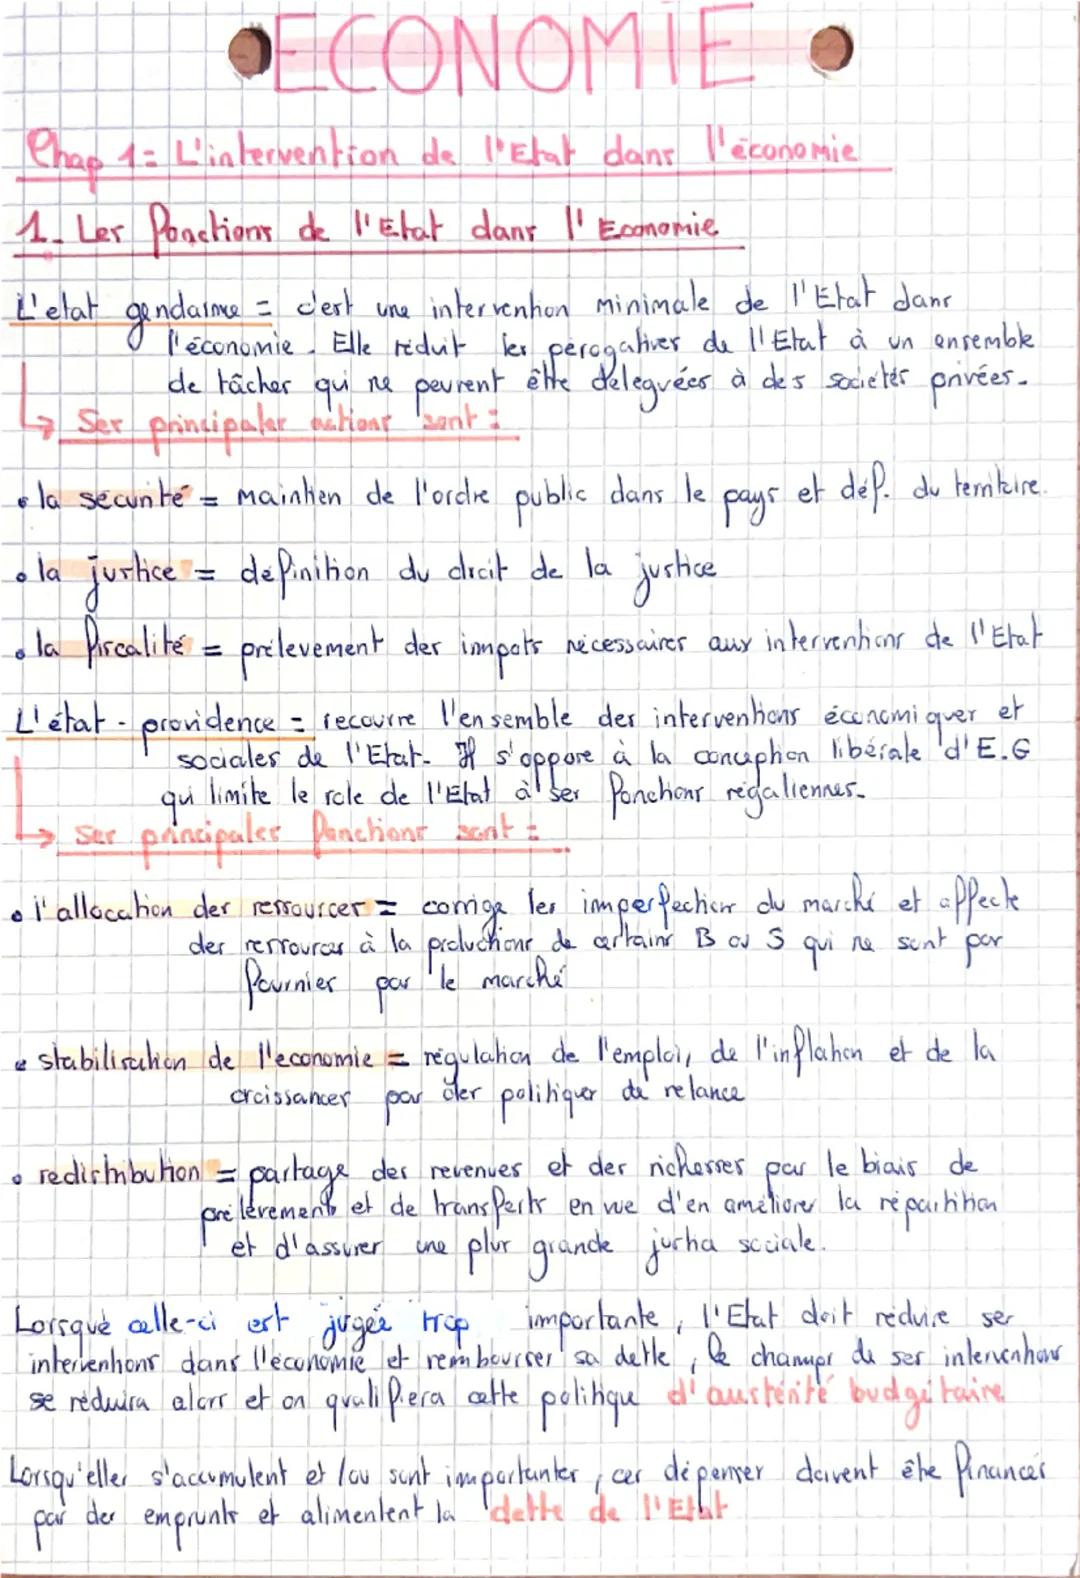 ECONOMIE
Chap 1 = L'intervention de l'Etat dans l'économie
1. Les Fonctions de l'Etat dans l'Economie
L'etat gendarme = c'est une intervention minimale de l'Etat dans
l'économie. Elle réduit les pérogatives de l'Etat à un ensemble
de tâches qui ne peuvent être déléguées à des sociétés privées.
↳ Ses principales actions sont :
• la sécurité = maintien de l'ordre public dans le pays et déf. du territoire.
• la justice = définition du droit de la justice
• la fiscalité = prélevement des impots nécessaires aux interventions de l'Etat
L'état-providence = recouvre l'ensemble des interventions économiques et
sociales de l'Etat. Il s'oppose à la conception libérale d'E.G
qui limite le role de l'Etat à ses fonctions régaliennes.
↳ ses principales fonctions sont :
• l'allocation des ressources = corrige les imperfections du marché et affecte
des ressources à la productions de certains B ou S qui ne sont pas
fournies par le marché
• stabilisation de l'economie = régulation de l'emploi, de l'inflation et de la
croissances par des politiques de relance
• redistribution = partage des revenues et des richesses par le biais de
prélèvements et de transferts en vue d'en améliorer la répartition
et d'assurer une plus grande justice sociale.
Lorsque celle-ci est jugée trop importante, l'Etat doit réduire ses
interventions dans l'économie et rembourser sa dette, le champs de ses interventions
se réduira alors et on qualifiera cette politique d'austérité budgétaire
Lorsqu'elles s'accumulent et/ou sont importantes, ces dépenses doivent être financés
par des emprunts et alimentent la dette de l'Etat